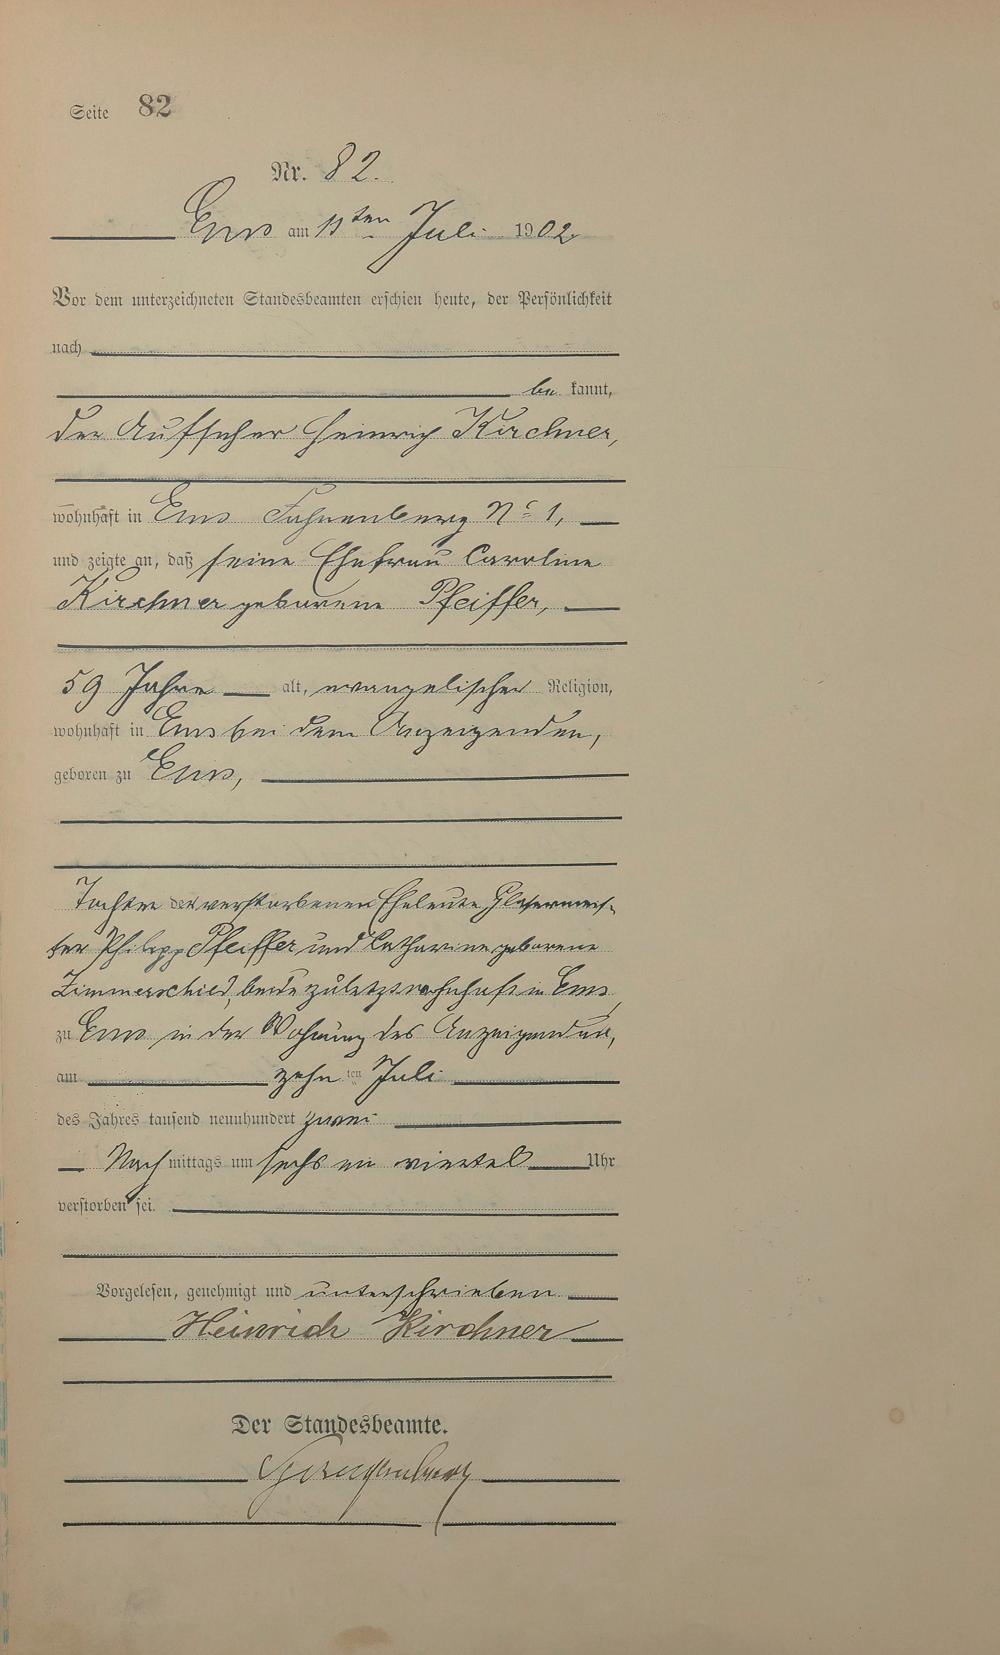 Seite 82
Nr. 82.
Ems am 11ten Juli 1902
Vor dem unterzeichneten Standesbeamten erschien heute, der Persönlichkeit
nach
be kannt,
der Aufseher Heinrich Kirchner,
wohnhaft in Ems Fahnenberg No 1,
und zeigte an, daß seine Ehefrau Caroline
Kirchner geborene Pfeiffer,
59 Jahre alt, evangelischer Religion,
wohnhaft in Ems bei dem Anzeigenden,
geboren zu Ems,
Tochter der verstorbenen Eheleute Glasermeis-
ter Philipp Pfeiffer und Catharine geborene
Zimmerschied, beide zuletzt wohnhaft in Ems,
zu Ems in der Wohnung des Anzeigenden,
am zehn ten Juli
des Jahres tausend neunhundert zwei
Nach mittags um sechs ein viertel Uhr
verstorben sei.
Vorgelesen, genehmigt und unterschrieben
Heinrich Kirchner
Der Standesbeamte.